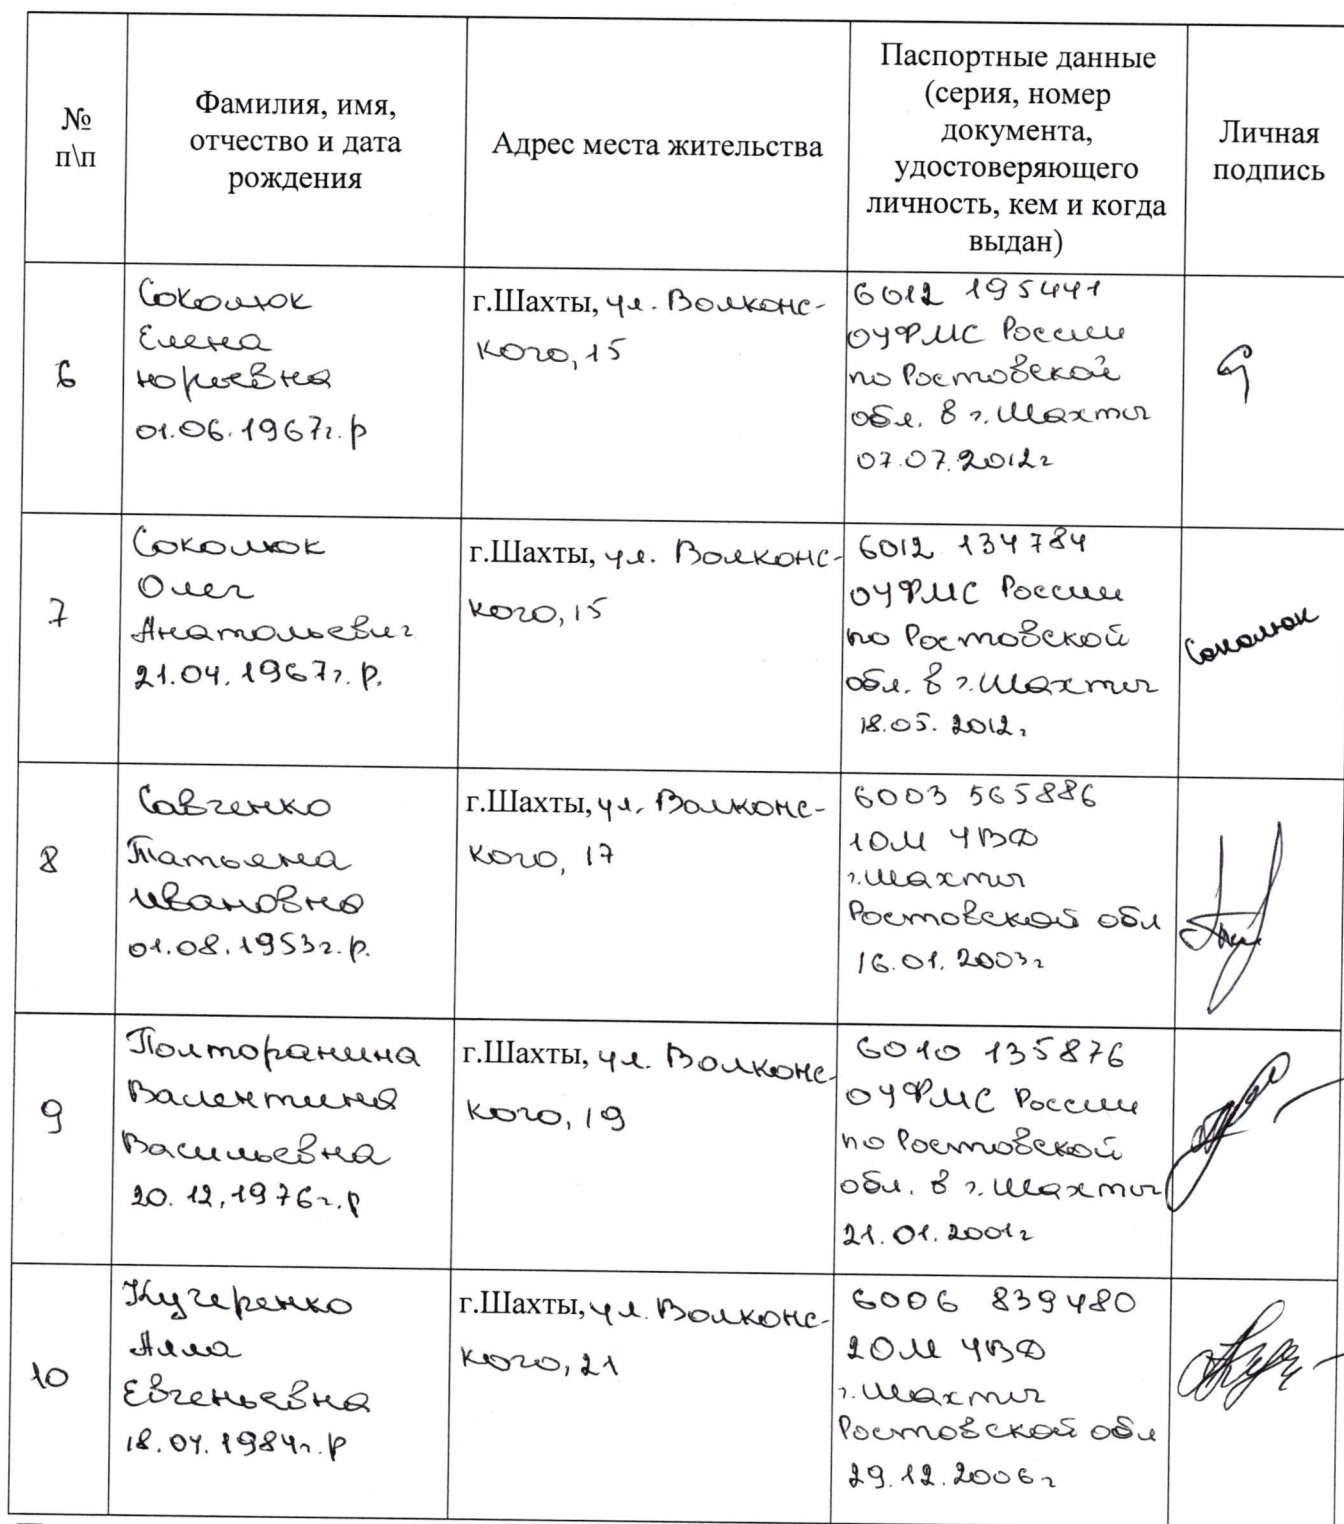 №
п\п
Фамилия, имя,
отчество и дата
рождения
Адрес места жительства
Паспортные данные
(серия, номер
документа,
удостоверяющего
личность, кем и когда
выдан)
Личная
подпись
6
Соколюк
Елена
Юрьевна
01.06.1967г.р
г.Шахты, ул. Волконс-
кого, 15
6012 195441
ОУФМС России
по Ростовской
обл. в г. Шахты
07.07.2012г
7
Соколюк
Олег
Анатольевич
21.04.1967г.р.
г.Шахты, ул. Волконс-
кого, 15
6012 134784
ОУФМС России
по Ростовской
обл. в г. Шахты
18.05.2012г
Соколюк
8
Савченко
Татьяна
Ивановна
01.08.1953г.р.
г.Шахты, ул. Волконс-
кого, 17
6003 565886
1ОМ УВД
г. Шахты
Ростовской обл
16.01.2003г
9
Полторанина
Валентина
Васильевна
20.12.1976г.р
г.Шахты, ул. Волконс-
кого, 19
6010 135876
ОУФМС России
по Ростовской
обл. в г. Шахты
21.01.2001г
10
Кучеренко
Алла
Евгеньевна
18.04.1984г.р
г.Шахты, ул. Волконс-
кого, 21
6006 839480
2ОМ УВД
г. Шахты
Ростовской обл
29.12.2006г